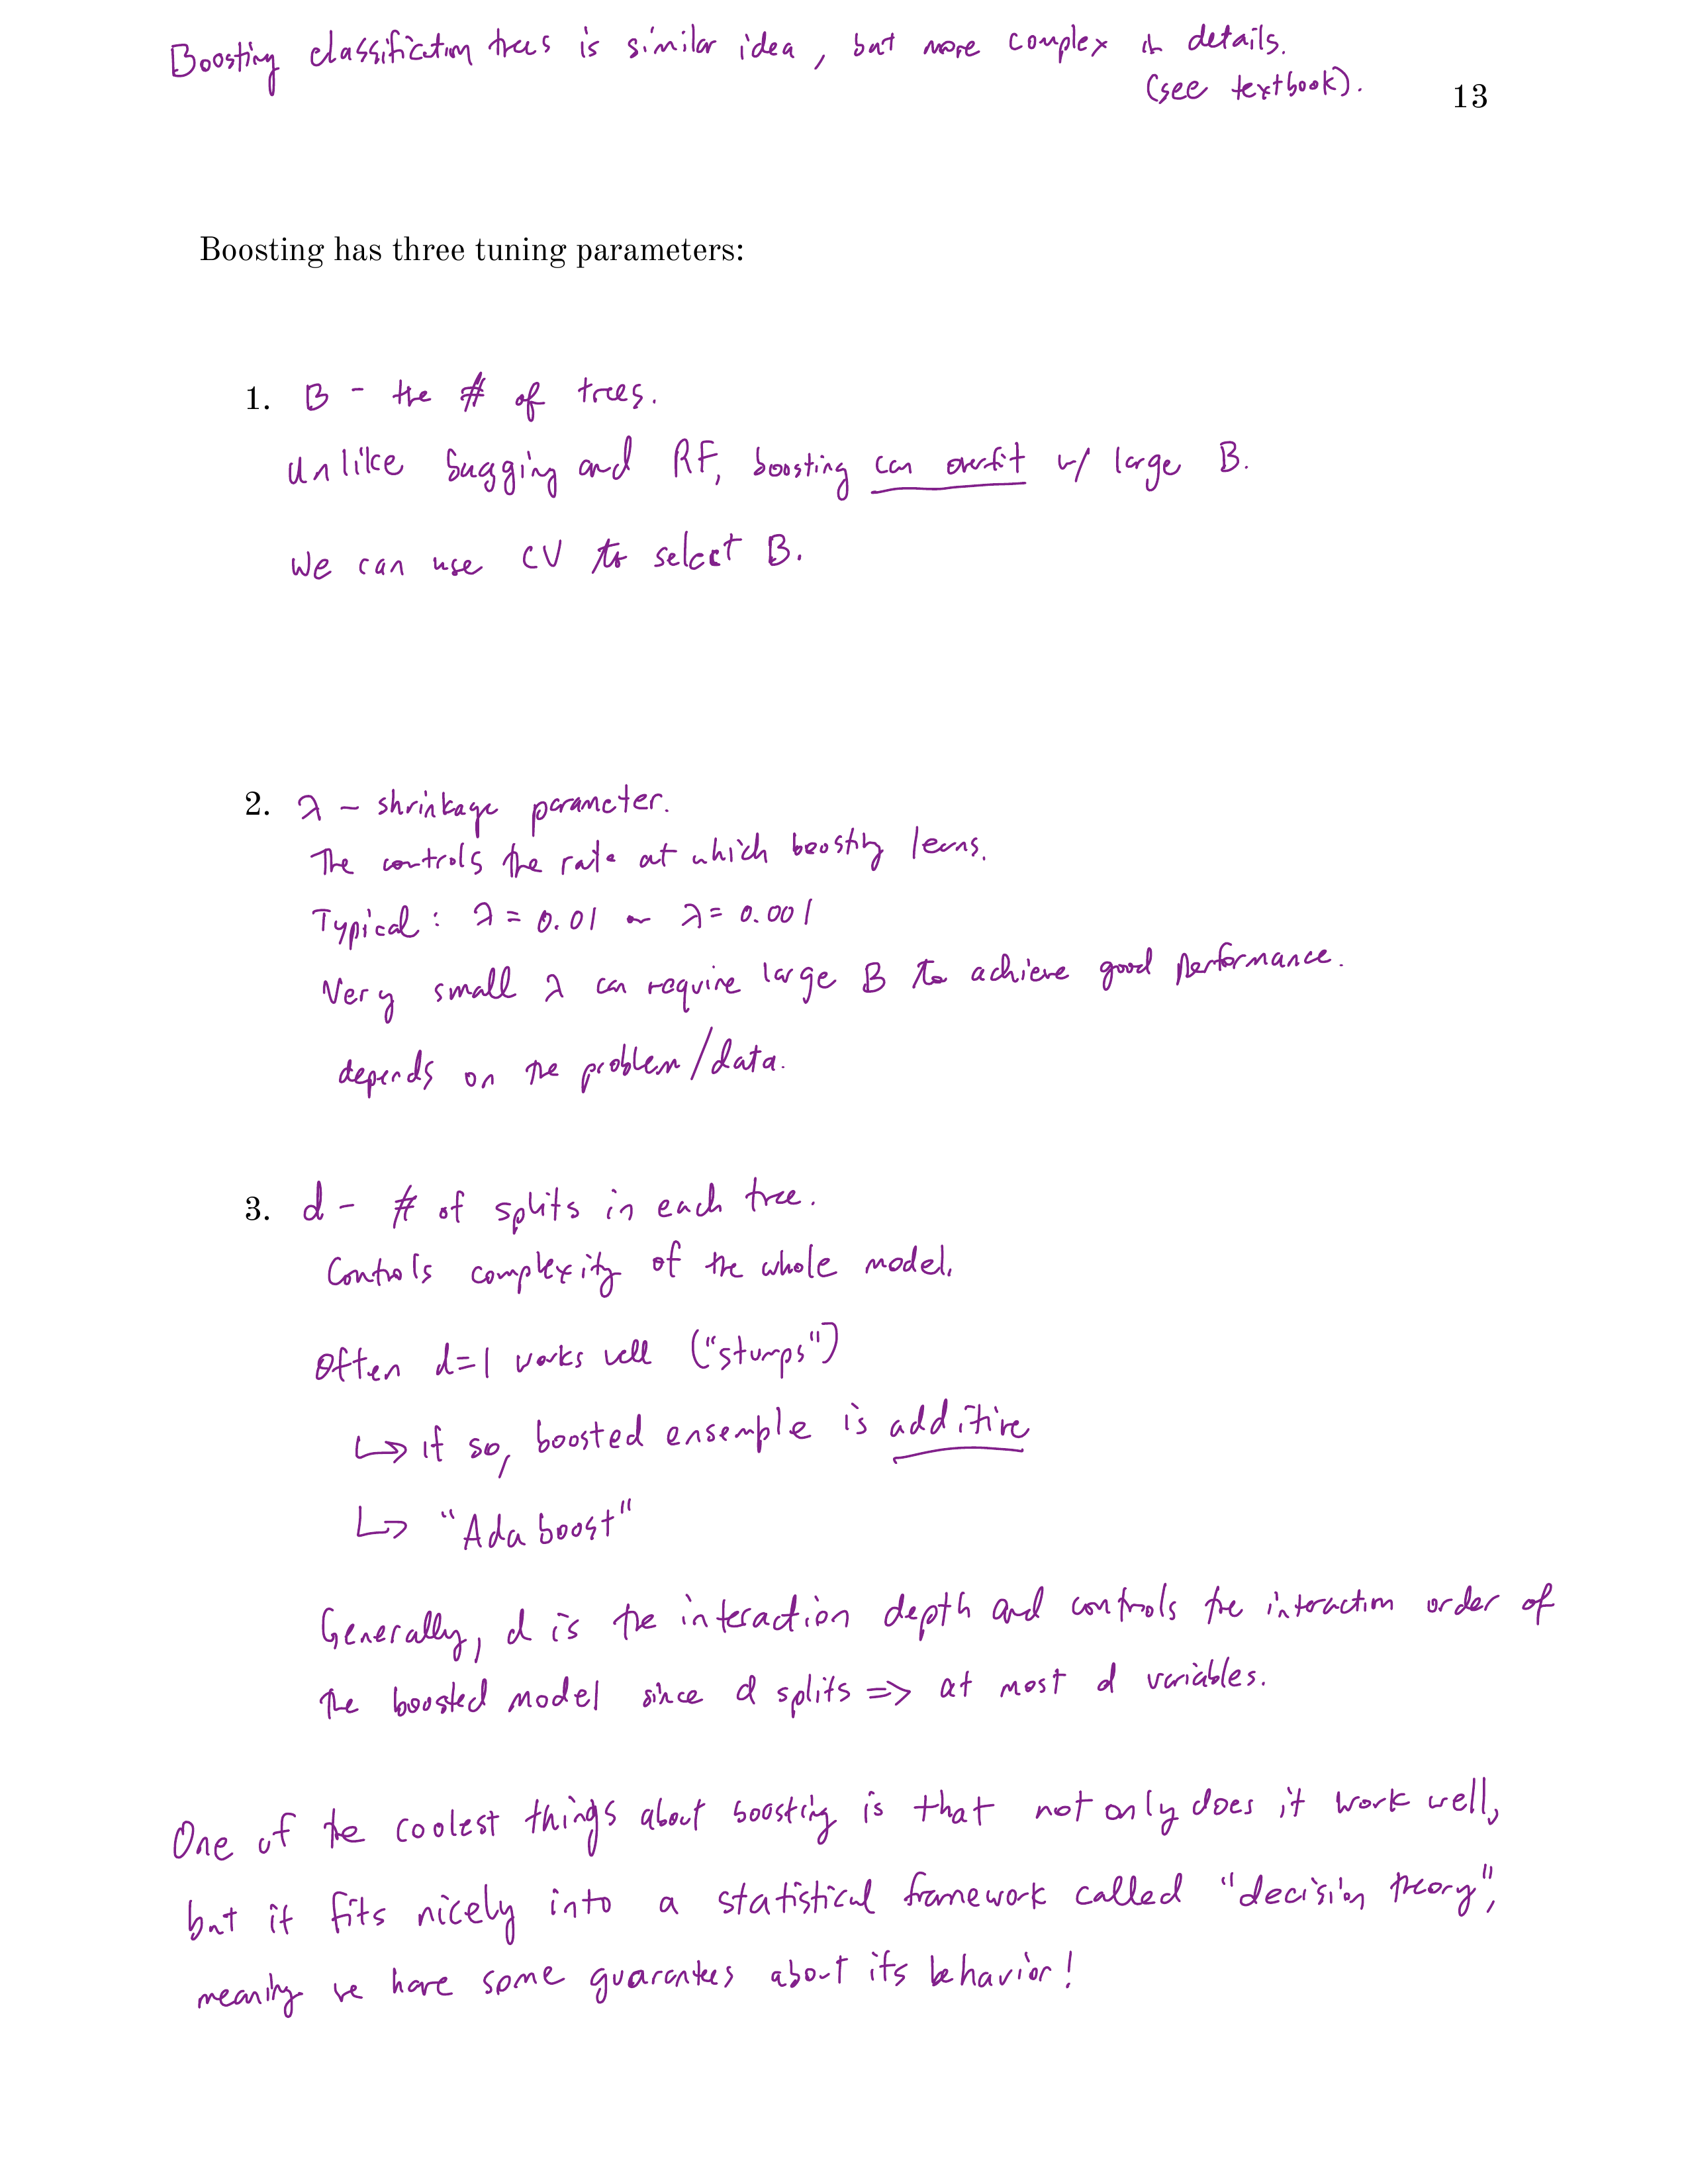 Boosting classification trees is similar idea, but more complex in details.
(see textbook).
13
Boosting has three tuning parameters:
1. B - the # of trees.
Unlike bagging and RF, boosting can overfit w/ large B.
We can use CV to select B.
2. λ - shrinkage parameter.
The controls the rate at which boosting learns.
Typical: λ = 0.01 or λ = 0.001
Very small λ can require large B to achieve good performance.
depends on the problem/data.
3. d - # of splits in each tree.
Controls complexity of the whole model.
Often d=1 works well ("stumps")
↳ if so, boosted ensemple is additive
↳ "Ada boost"
Generally, d is the interaction depth and controls the interaction order of
the boosted model since d splits => at most d variables.
One of the coolest things about boosting is that not only does it work well,
but it fits nicely into a statistical framework called "decision theory",
meaning we have some guarantees about its behavior!